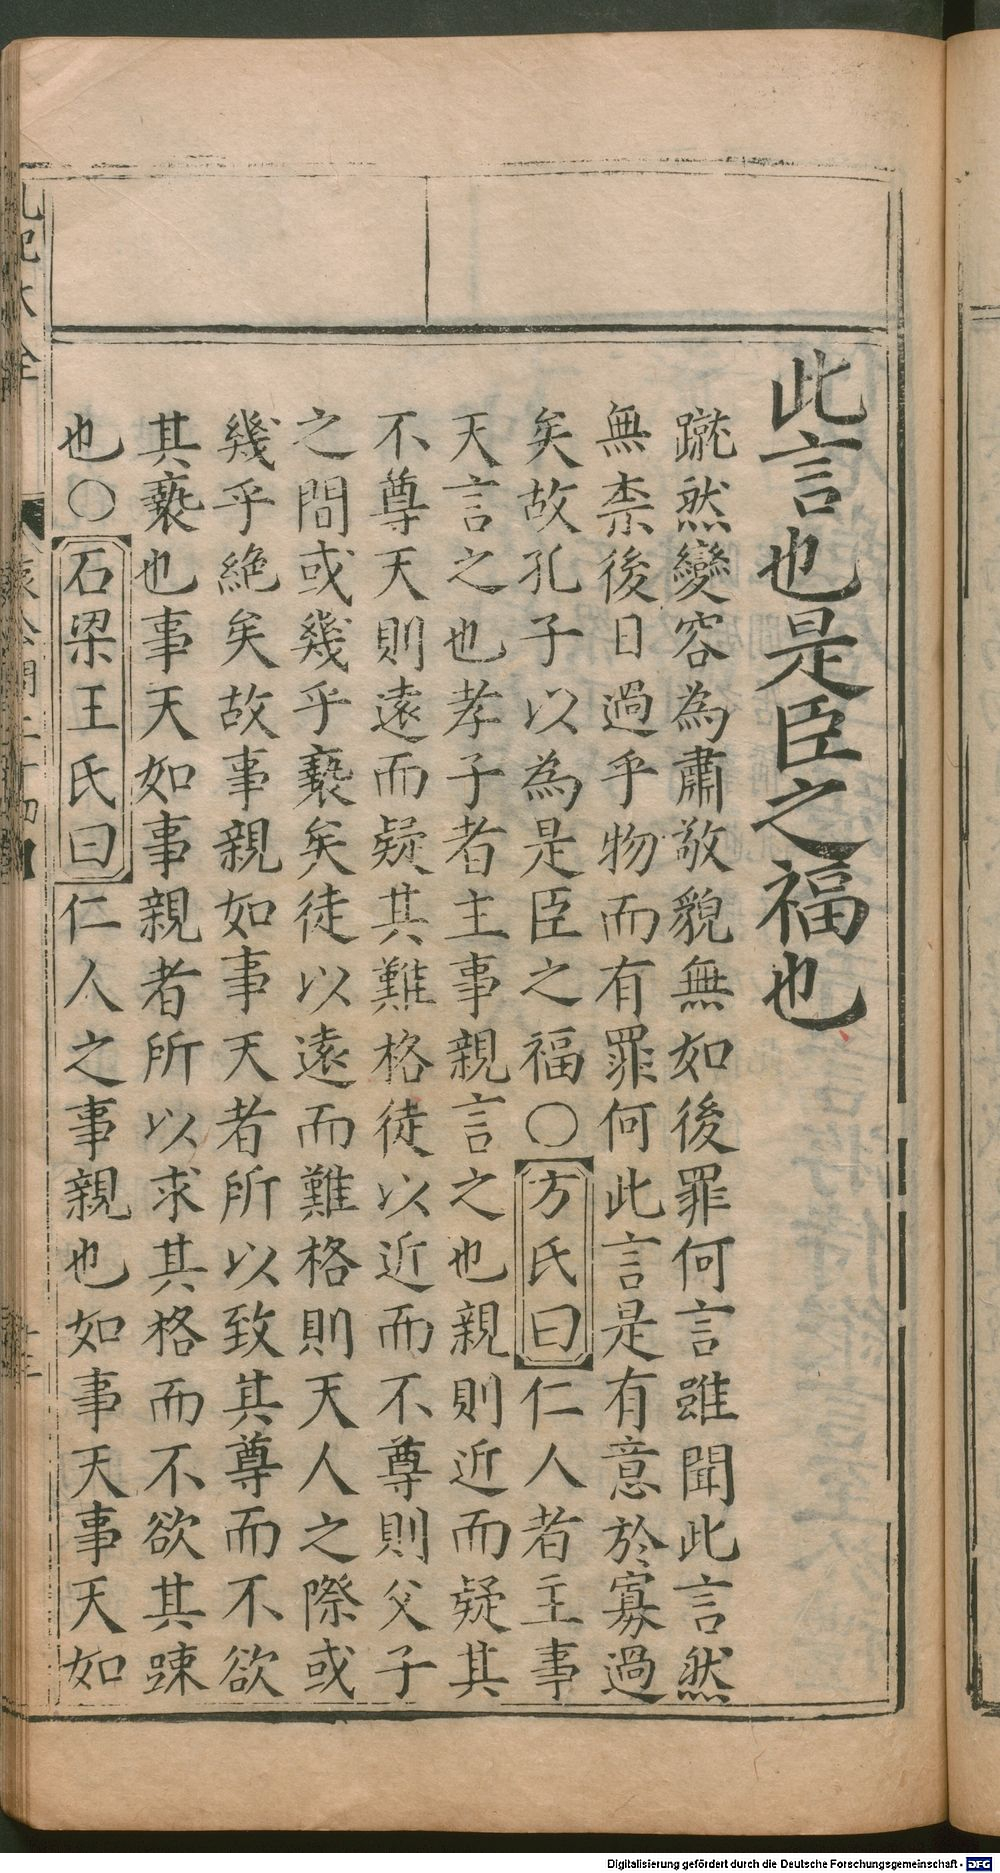 此言也是臣之福也
蹴然變容為肅敬貌無如後罪何言雖聞此言然
無柰後日過乎物而有罪何此言是有意於寡過
矣故孔子以為是臣之福○方氏曰仁人者主事
天言之也孝子者主事親言之也親則近而疑其
不尊天則遠而疑其難格徒以近而不尊則父子
之間或幾乎褻矣徒以遠而難格則天人之際或
幾乎絶矣故事親如事天者所以致其尊而不欲
其褻也事天如事親者所以求其格而不欲其踈
也○石梁王氏曰仁人之事親也如事天事天如
Digitalisierung gefördert durch die Deutsche Forschungsgemeinschaft - DFG